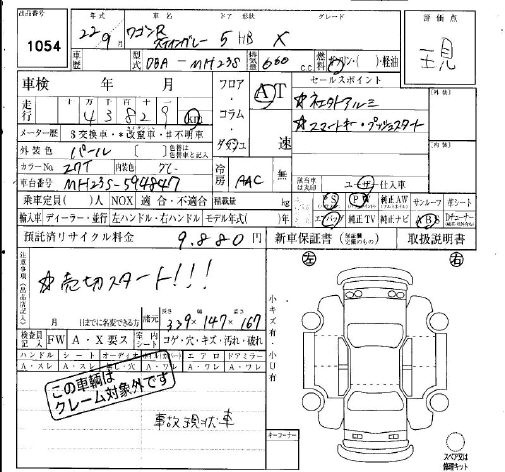 出品番号 年式 車名 ドア 形状 グレード 評価点
1054 22年9月 ワゴンR スティングレー 5 HB X 現
車歴 型式 DBA-MH23S 排気量 660 c.c. 燃料 ガソリン・( )・軽油
車検 年 月 フロア・コラム・ダッシュ AT 速 セールスポイント 外装 内装
走行 十 万 千 百 十 一
43829 Km ☆社外アルミ
メーター歴 $交換車・*改ざん車・#不明車 ☆スマートキー・プッシュスタート
外装色 パール
カラーNo. 27T 内装色 グレー 冷房 AAC 無 ユーザー・仕入車
車台番号 MH23S-594847
乗車定員( )人 NOX 適合・不適合 PS PW 純正AW サンルーフ 革シート
輸入車 ディーラー・並行 左ハンドル・右ハンドル モデル年式( )年 エアバッグ 純正TV 純正ナビ ABS
預託済リサイクル料金 9,880円 新車保証書 取扱説明書
注意事項(出品店記入)
☆売切スタート!!!
左 右
月 日までに名変できる方 諸元 長さ 339 × 幅 147 × 高さ 167
小キズ有 小凹有
検査員記入 FW A・X要ス 室内シート コゲ・穴・キズ・汚れ・破れ
ハンドル シート オーディオ エアロ ドアミラー
A・スレ A・スレ A・ワレ A・ワレ
この車輌は
クレーム対象外です
事故現状車
キーフーナー
スペア又は
修理キット